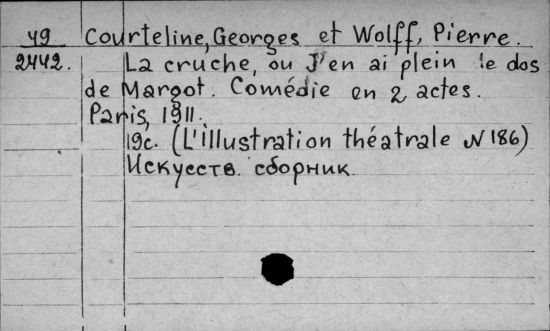 49 Courteline, Georges et Wolff, Pierre.
2442. La cruche, ou J'en ai plein le dos
de Margot. Comédie en 2 actes.
Paris, 1911.
19c. (L'illustration théatrale N 186)
Искусств. сборник